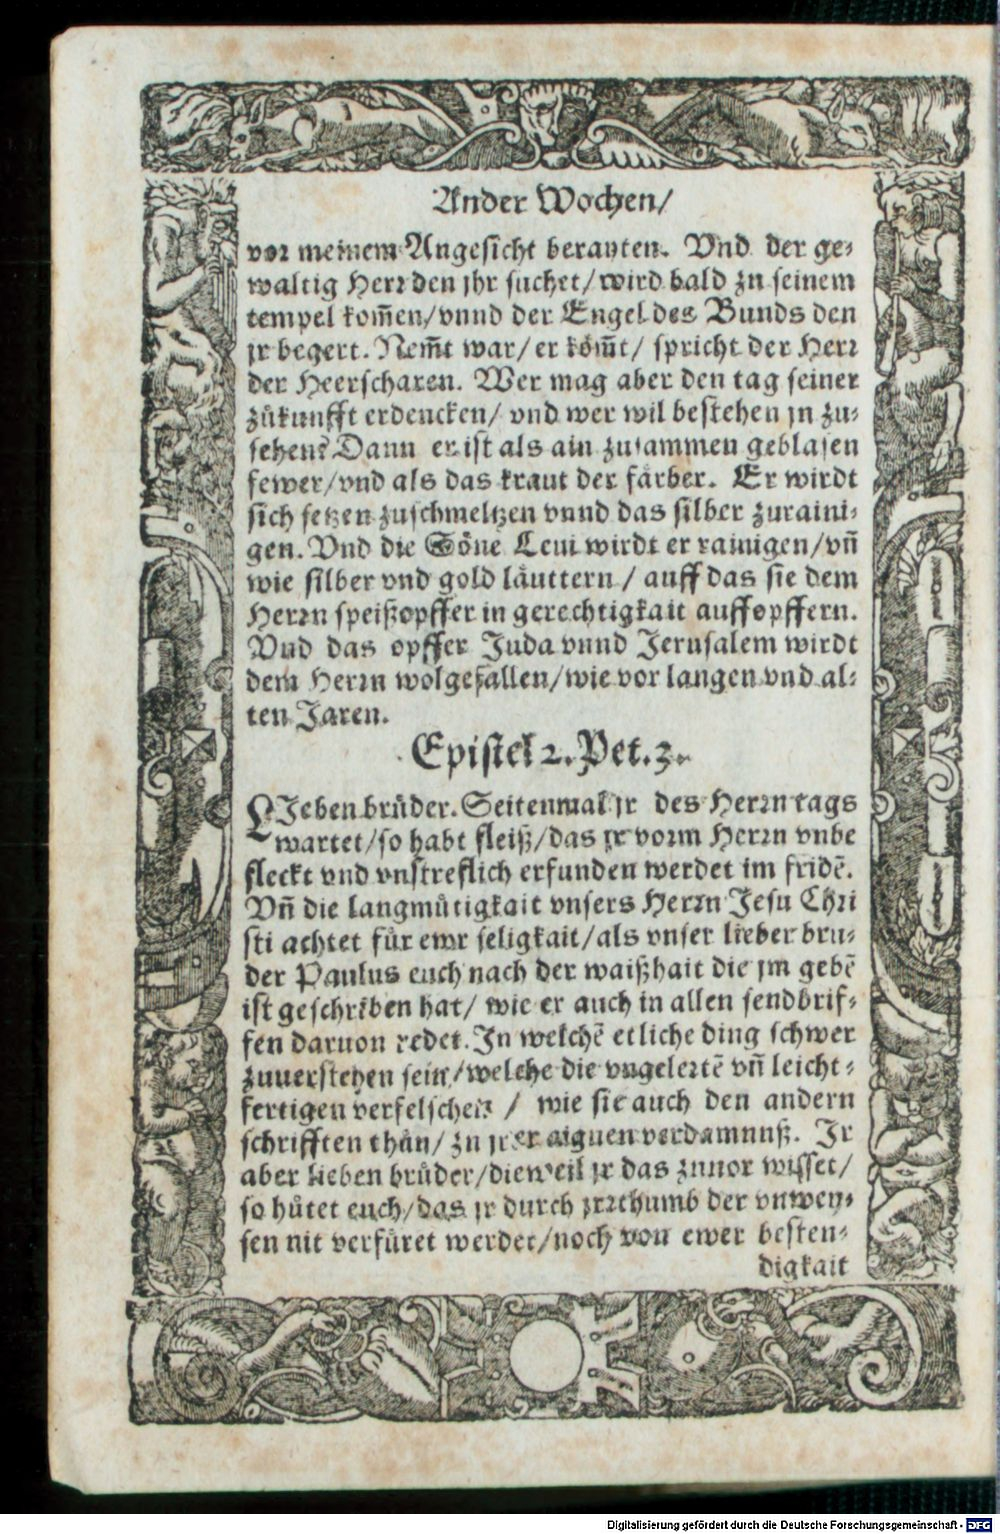 Ander Wochen/
vor meinem Angesicht berayten. Vnd der ge-
waltig Herr den jhr suchet/wird bald zu seinem
tempel kom̄en/vnnd der Engel des Bunds den
jr begert. Nem̄t war/ er kom̄t/ spricht der Herr
der Heerscharen. Wer mag aber den tag seiner
zůkunfft erdencken/ vnd wer wil bestehen jn zu-
sehen? Dann er ist als ain zusammen geblasen
fewer/vnd als das kraut der färber. Er wirdt
sich setzen zuschmeltzen vnnd das silber zuraini-
gen. Vnd die Söne Leui wirdt er rainigen/vn̄
wie silber vnd gold läuttern / auff das sie dem
Herrn speißopffer in gerechtigkait auffopffern.
Vnd das opffer Juda vnnd Jerusalem wirdt
dem Herrn wolgefallen/wie vor langen vnd al-
ten Jaren.
Epistel 2. Pet. 3.
LJeben brüder. Seitenmal jr des Herrn tags
wartet/so habt fleiß/das jr vorm Herrn vnbe
fleckt vnd vnstreflich erfunden werdet im fridē.
Vn̄ die langmütigkait vnsers Herrn Jesu Chri
sti achtet für ewr seligkait/als vnser lieber bru-
der Paulus euch nach der waißhait die jm gebē
ist geschriben hat/ wie er auch in allen sendbrif-
fen daruon redet. In welchē etliche ding schwer
zuuerstehen sein/welche die vngelertē vn̄ leicht-
fertigen verfelschen / wie sie auch den andern
schrifften thůn/ zu jrer aignen verdamnuß. Jr
aber lieben brüder/dieweil jr das zuuor wisset/
so hütet euch/das jr durch jrrthumb der vnwey-
sen nit verfüret werdet/noch von ewer besten-
digkait
Digitalisierung gefördert durch die Deutsche Forschungsgemeinschaft - DFG